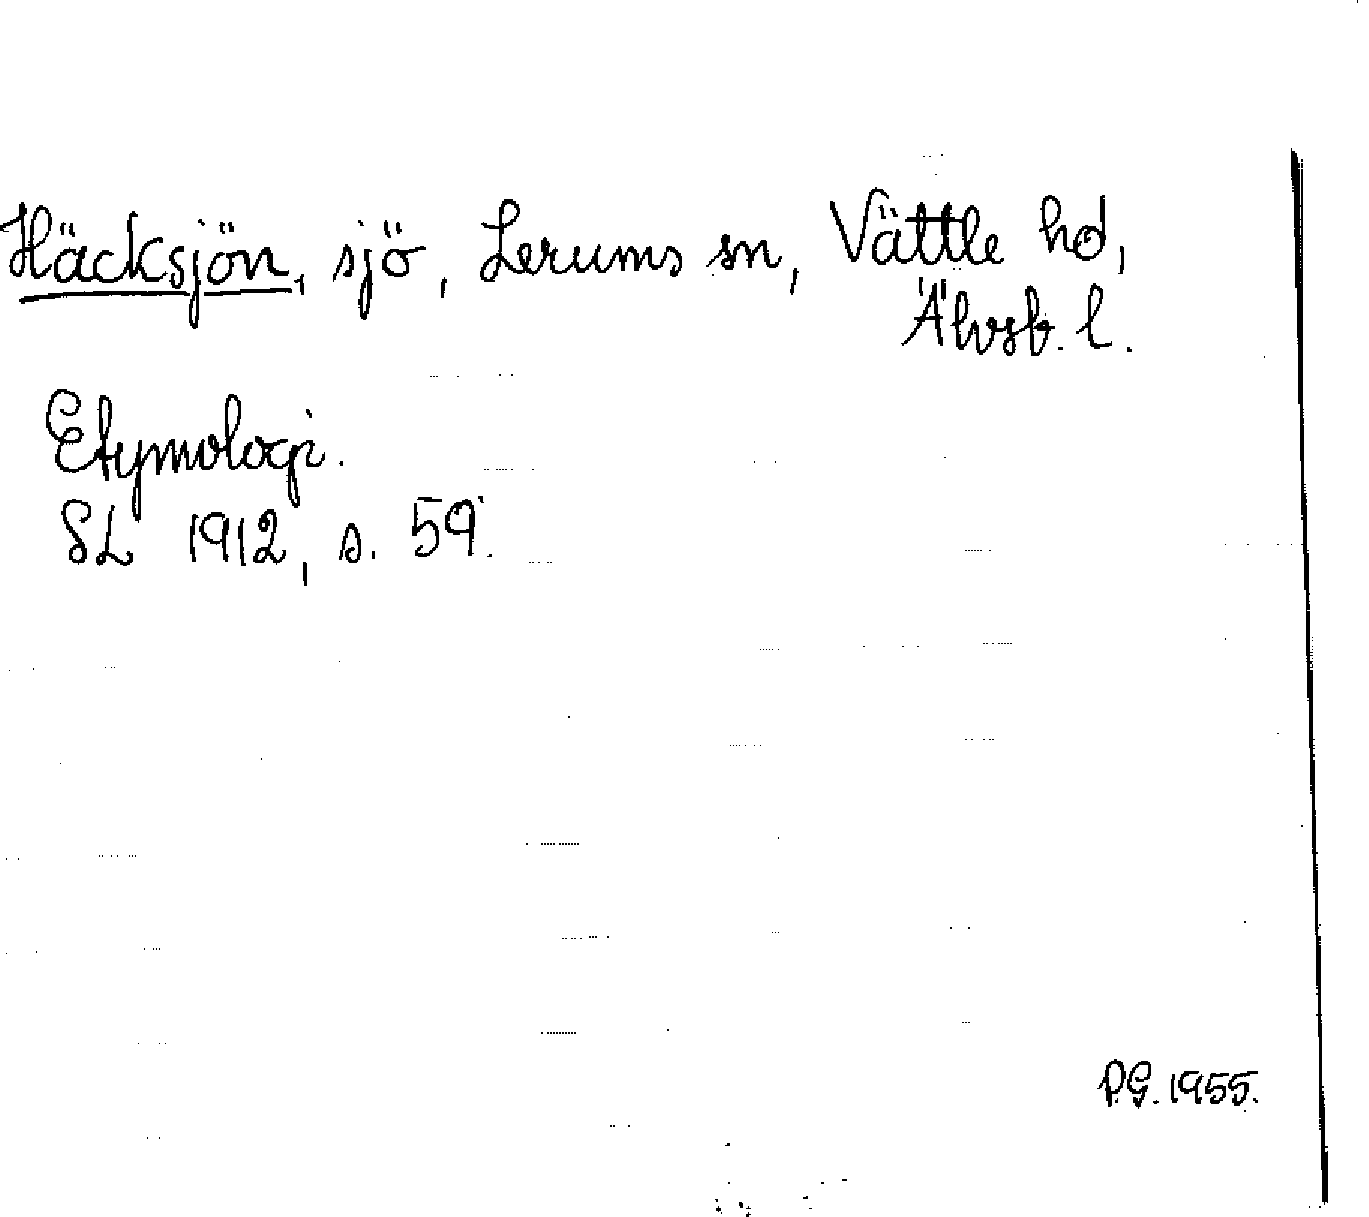 Häcksjön, sjö, Lerums sn, Vättle hd,
Älvsb. l.
Etymologi.
SL 1912, s. 59.
P.G. 1955.